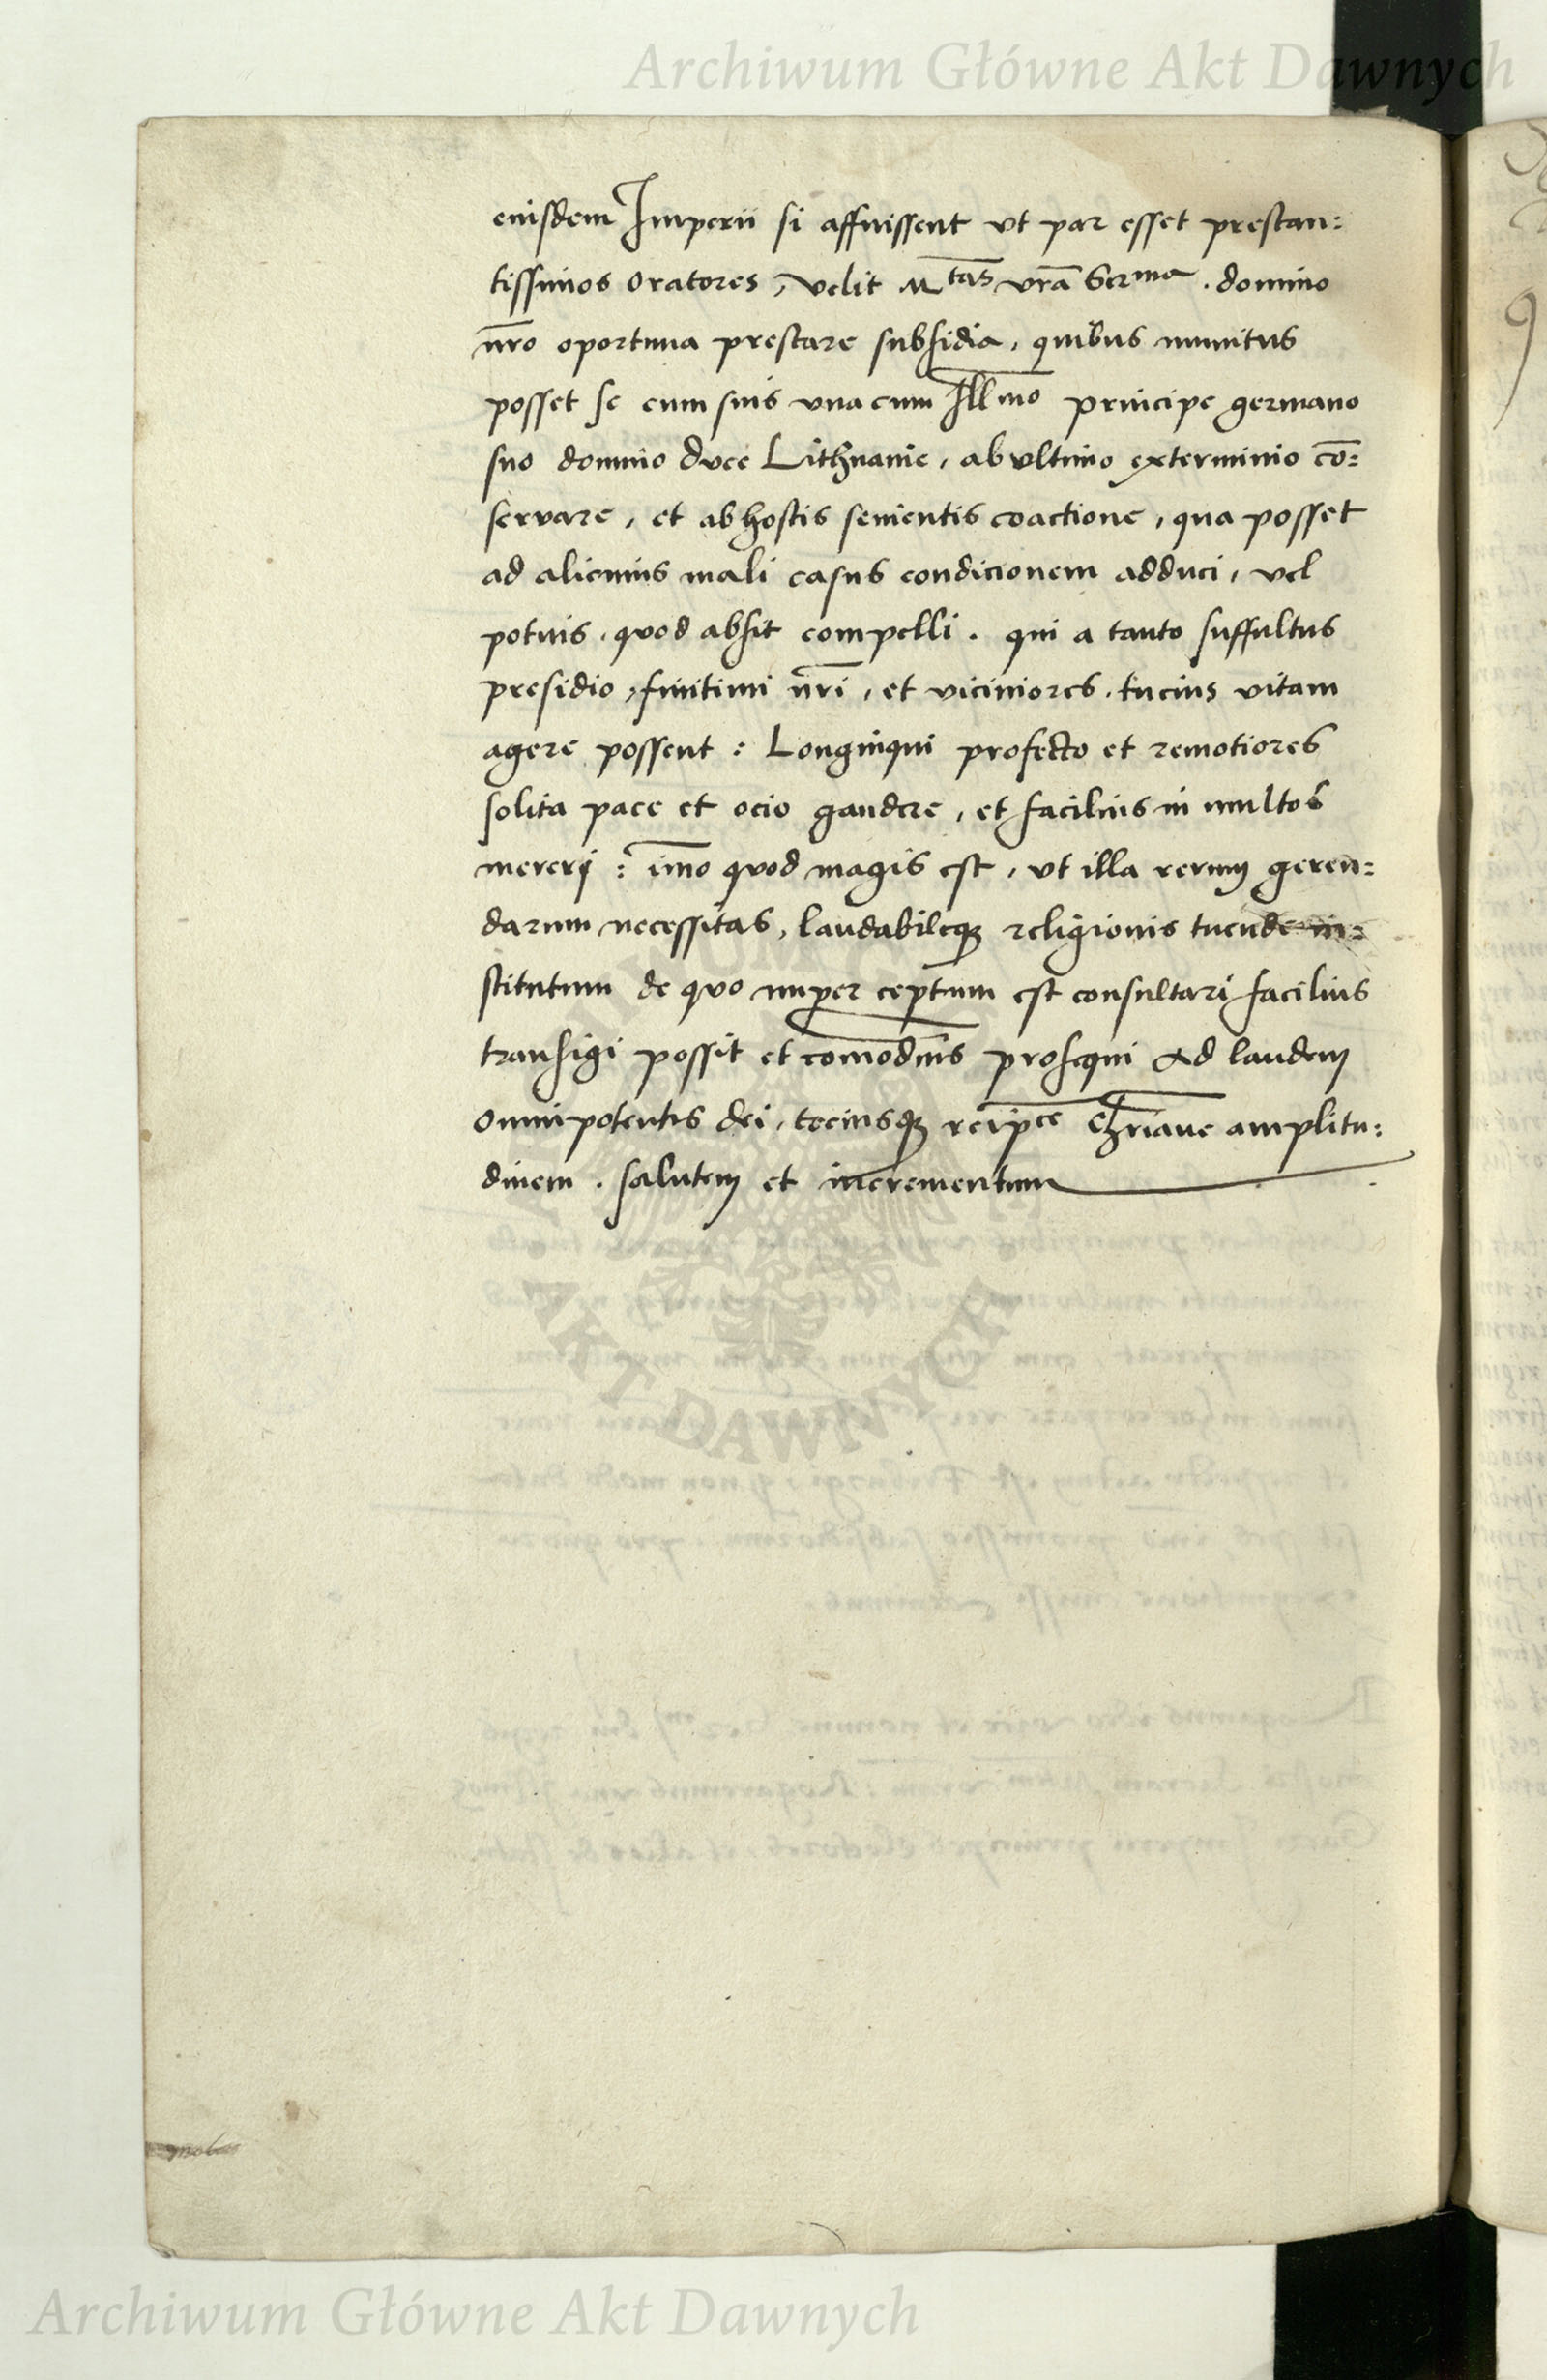 Archiwum Główne Akt Dawnych
eiusdem Imperii si affuissent vt par esset prestan:
tissimos oratores, velit Mtas vra̅ Serma . domino
nr̅o oportuna prestare subsidia, quibus munitus
posset se cum suis vna cum Ill̅mo principe germano
suo domino duce Lithuanie, ab vltimo exterminio co̅:
servare, et ab hostis seuientis coactione, qua posset
ad alicuius mali casus condicionem adduci, vel
potuis . quod absit compelli . qui a tanto suffultus
presidio, finitimi nr̅i, et viciniores . tucius vitam
agere possent : Longinqui profecto et remotiores
solita pace et ocio gaudere, et facilius in multos
mererj : im̅o quod magis est, vt illa rerum geren:
darum necessitas, laudabileqȝ religionis tuende in:
stitutum de quo nuper cept̅um est consultari facilius
transigi possit et com̅odius prosequi ad laudem
omnipotentis dei, tociusqȝ reip̅ce Chr̅iane amplitu:
dinem . salutem et incrementum
AKT DAWNYCH
Archiwum Główne Akt Dawnych